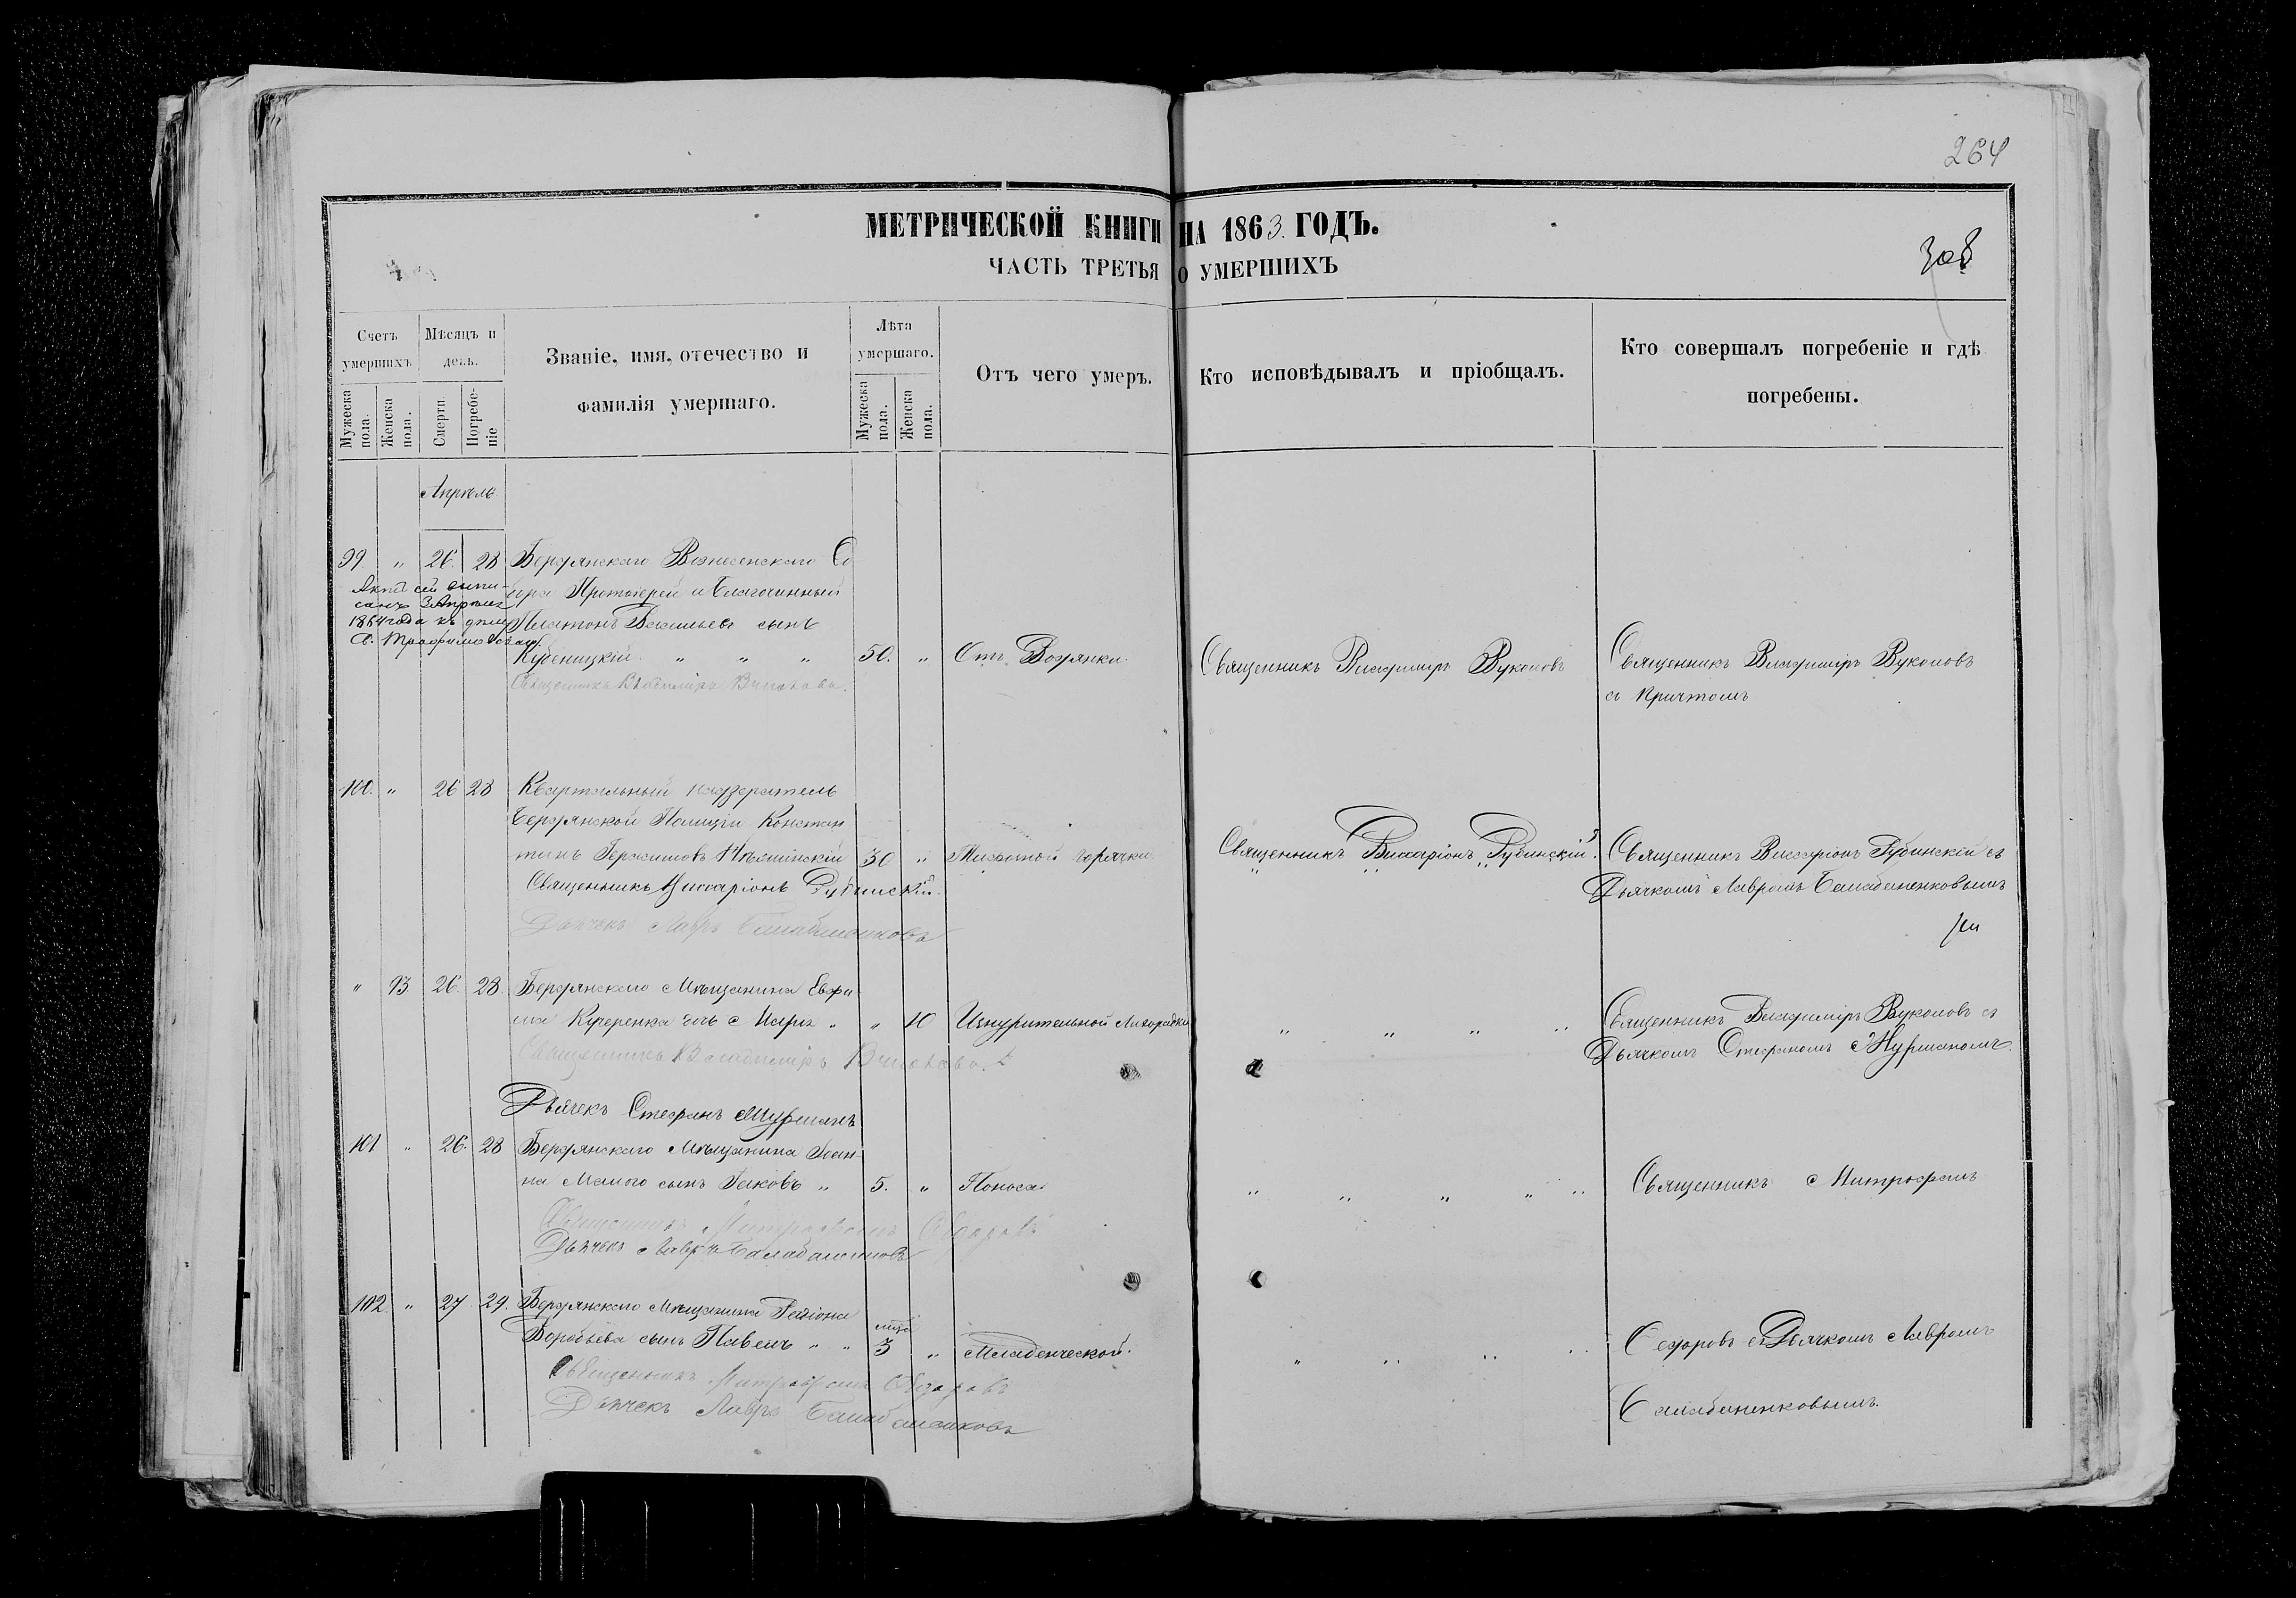 264
МЕТРИЧЕСКОЙ КНИГИ НА 1863. ГОДЪ.
ЧАСТЬ ТРЕТЬЯ О УМЕРШИХЪ
308
Счетъ умершихъ
Мѣсяцъ и день.
Званіе, имя, отечество и фамилія умершаго.
Лѣта умершаго.
Отъ чего умеръ.
Кто исповѣдывалъ и пріобщалъ.
Кто совершалъ погребеніе и гдѣ погребены.
Мужеска пола.
Женска пола.
Смерти
Погребеніе
Мужеска пола.
Женска пола.
Апрѣль
99 " 26. 28 Бердянскаго Вознесенскаго Со
бора Протоіерей и Благочинный
Платонъ Васильевъ сынъ
Кубеницкій " " " 50. " Отъ Водянки. Священникъ Владиміръ Вуколовъ Священникъ Владиміръ Вуколовъ
съ причтомъ
Актъ сей выпи-
санъ 3 Апрѣля
1864 года къ дѣлу
Священникъ Владиміръ Вуколовъ.
100. " 26 28 Квартальный надзиратель
Бердянской Полиціи Констан
тинъ Герасимовъ 30 " горячки Священникъ Виссаріонъ Рубинскій. Священникъ Виссаріонъ Рубинскій съ
Дьячкомъ Лавромъ Балабаненковымъ
Священникъ Виссаріонъ Рубинскій.
Дьячекъ Лавръ Балабаненковъ
" 93 26. 28. Бердянскаго Мѣщанина Евфи
ма Кучеренка дочь Марія " " 10 Изнурительной Лихорадки " " " " Священникъ Владиміръ Вуколовъ съ
Дьячкомъ Стефаномъ Мурманомъ.
Священникъ Владиміръ Вуколовъ.
Дьячекъ Стефанъ Мурманъ
101 " 26. 28 Бердянскаго Мѣщанина Іоан-
на Малого сынъ Іаковъ " 5. " Поноса " " " " " Священникъ Митрофанъ
Священникъ Митрофанъ Сѣдоровъ
Дьячекъ Лавръ Балабаненковъ
102 " 27 29. Бердянскаго Мѣщанина
Воробьева сынъ Павелъ " " мѣс. 3 " Младенческой. " " " " Седоровъ съ Дьячкомъ Лавромъ
Балабаненковымъ.
Священникъ Митрофанъ
Дьячекъ Лавръ Балабаненковъ